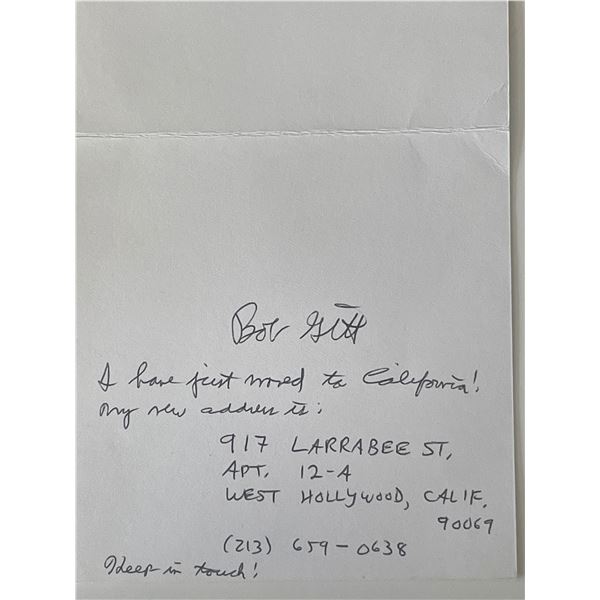 Bob Gitt
I have just moved to California!
My new address is:
917 LARRABEE ST,
APT, 12-A
WEST HOLLYWOOD, CALIF.
90069
(213) 659-0638
Keep in touch!